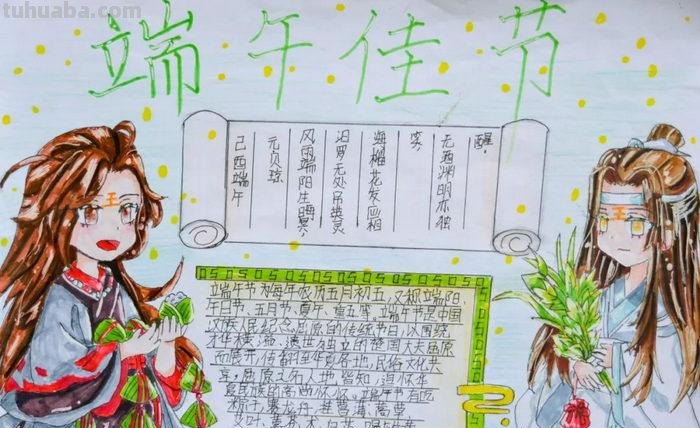 tuhuaba.com
端午佳节
己酉端午
元贝琼
风雨端阳生暝冥,
汨罗无处吊英灵
海榴花发应相
笑,
无酒渊明亦独
醒。
王
王
端午节为每年农历五月初五,又称端阳、
午日节、五月节、夏午、重五等,端午节是中国
汉族人民纪念屈原的传统节日,以围绕
才华横溢、遗世独立的楚国大夫屈原
而展开,传播至华夏各地,民俗文化共
享,屈原之名人地皆知,追怀华
夏民族的高尚情怀。端午节有吃
粽子,赛龙舟,挂菖蒲、蒿草